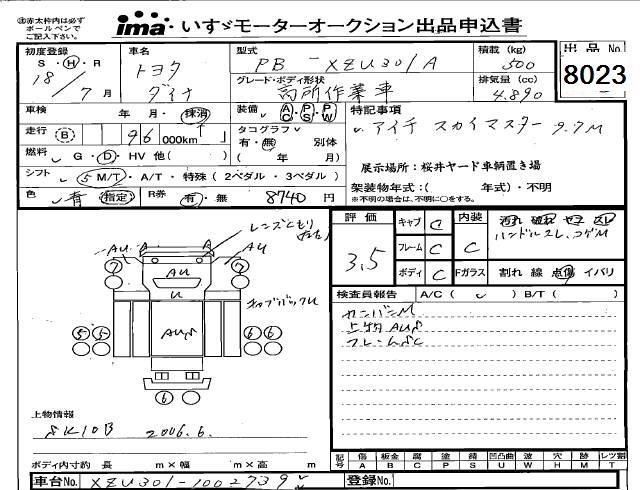 ㊟赤太枠内は必ず
ボールペンで
ご記入下さい。
ima いすゞモーターオークション出品申込書
初度登録 車名 型式 積載 (kg) 出品 No
S・H・R トヨタ PB-XZU301A 500
18/7月 ダイナ グレード・ボディ形状 排気量 (cc) 8023
高所作業車 4.890
車検 年 月・抹消 装備 AC PS PW 特記事項
走行 (B) 96 000km タコグラフ アイチ スカイマスター 9.7M
有・無 別体
燃料 G・D・HV 他( ) ( 年 月) 展示場所：桜井ヤード車輌置き場
シフト 5 M/T・A/T・特殊 (2ペダル・3ペダル) 架装物年式：( 年式)・不明
※不明の場合は、不明に○をする。
色 青 指定 R券 有・無 8740 円
評価 キャブ C 内装 汚れ 破れ セス スレ
レンズくもり
左右
AU A A AU
3.5 フレーム C C ハンドルスレ、コゲM
7 7
AU
ボディ C Fガラス 割れ 線 点傷 イバリ
U キャブバックU
検査員報告 A/C ( ) B/T ( )
カンバンM
5 5 6 6
上物AUS
フレームSC
6
上物情報
SK10B 2006.6.
記号 傷 板金 腐 塗 錆 凹凸曲 波 穴 跡 レツ割
A B C P S U W H M T
ボディ内寸約 長 m×幅 m×高 m
車台No XZU301-1002739 登録No.